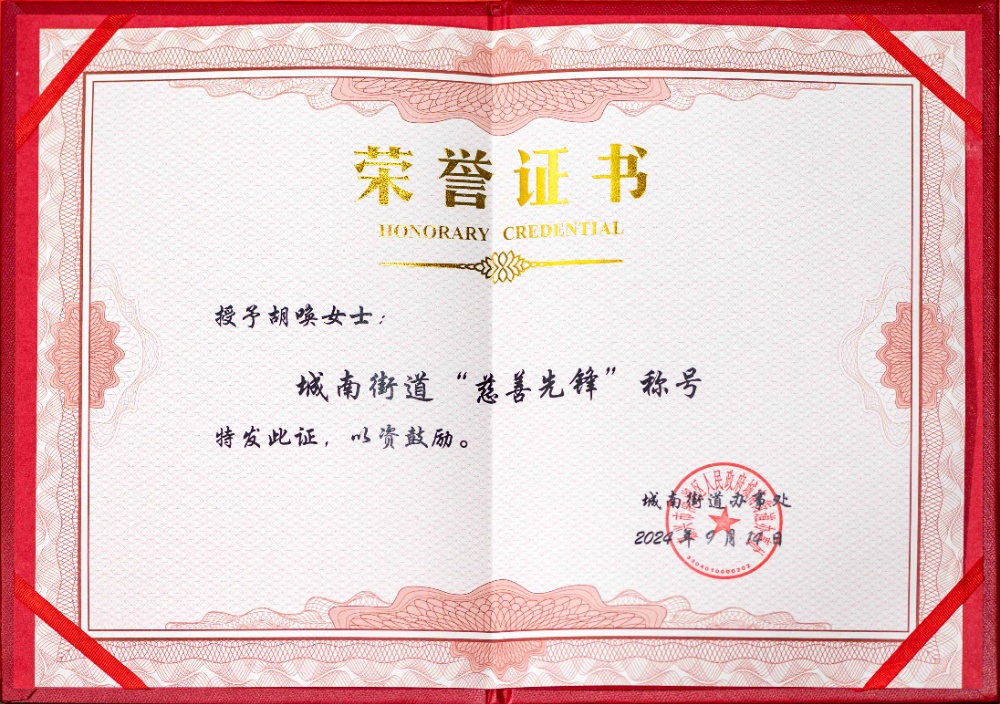 荣誉证书
HONORARY CREDENTIAL
授予胡唤女士：
城南街道“慈善先锋”称号
特发此证，以资鼓励。
城南街道办事处
2024年9月14日